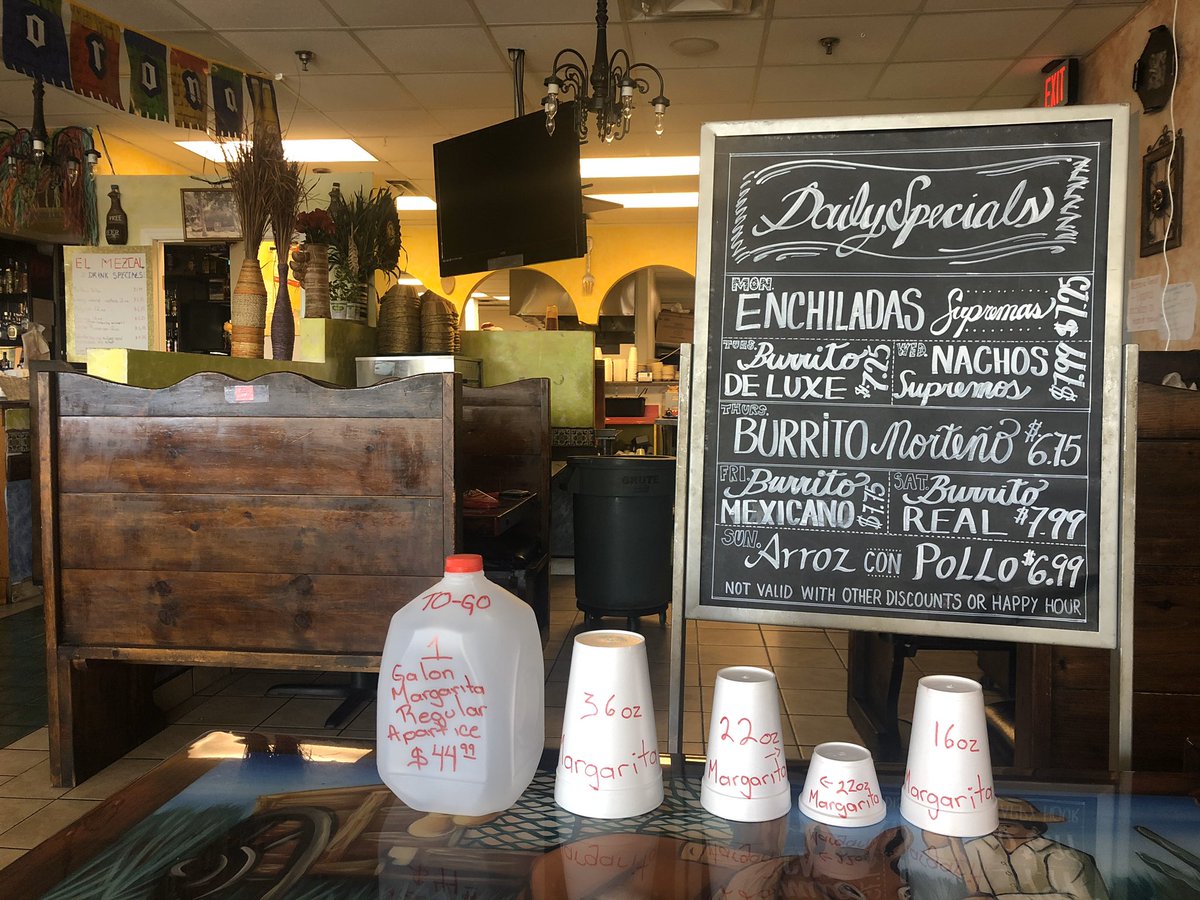 orona
EXIT
EL MEZCAL
DRINK SPECIALS
Daily Specials
MON.
ENCHILADAS Supremas $7.25
TUES.
Burrito
DE LUXE $7.25
WED.
NACHOS
Supremos $7.99
THURS.
BURRITO Norteño $6.75
FRI.
Burrito
MEXICANO $7.75
SAT.
Burrito
REAL $7.99
SUN.
Arroz CON POLLO $6.99
NOT VALID WITH OTHER DISCOUNTS OR HAPPY HOUR
BRUTE
TO-GO
1
Galon
Margarita
Regular
Apart ice
$44.99
36oz
Margarita
22oz
→
Margarita
←22oz
Margarita
16oz
Margarita